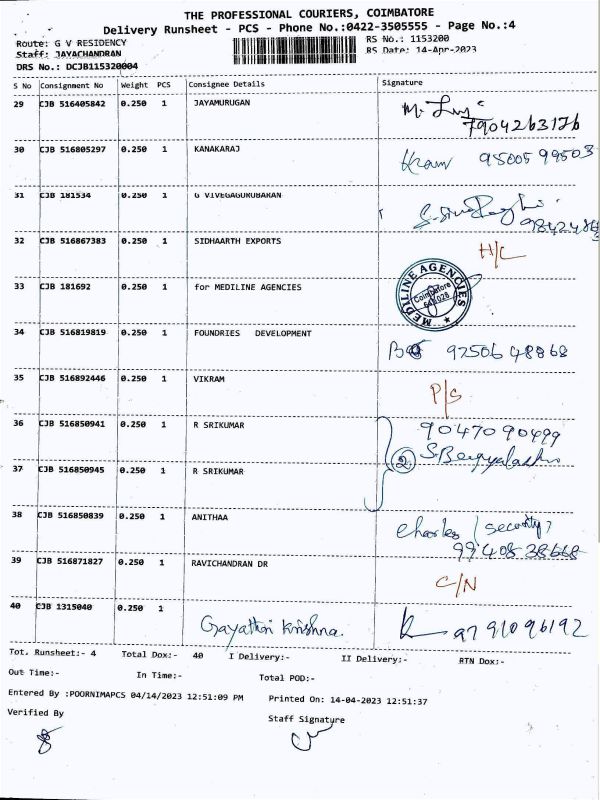 THE PROFESSIONAL COURIERS, COIMBATORE
Delivery Runsheet - PCS - Phone No.:0422-3505555 - Page No.:4
Route: G V RESIDENCY RS No.: 1153200
Staff: JAYACHANDRAN RS Date: 14-Apr-2023
DRS No.: DCJB115320004
S No Consignment No Weight PCS Consignee Details Signature
29 CJB 516405842 0.250 1 JAYAMURUGAN
7904263126
30 CJB 516805297 0.250 1 KANAKARAJ 9500599503
31 CJB 181534 0.250 1 G VIVEGAGURUBARAN
32 CJB 516867383 0.250 1 SIDHAARTH EXPORTS H/C
33 CJB 181692 0.250 1 for MEDILINE AGENCIES
MEDILINE AGENCIES
Coimbatore
641028
34 CJB 516819819 0.250 1 FOUNDRIES DEVELOPMENT
92506 48868
35 CJB 516892446 0.250 1 VIKRAM P/S
36 CJB 516850941 0.250 1 R SRIKUMAR 90470 90499
2
37 CJB 516850945 0.250 1 R SRIKUMAR
38 CJB 516850839 0.250 1 ANITHAA Charles / security
99408 38668
39 CJB 516871827 0.250 1 RAVICHANDRAN DR C/N
40 CJB 1315040 0.250 1
Gayathri Krishna. 97 91096192
Tot. Runsheet:- 4 Total Dox:- 40 I Delivery:- II Delivery:- RTN Dox:-
Out Time:- In Time:- Total POD:-
Entered By :POORNIMAPCS 04/14/2023 12:51:09 PM Printed On: 14-04-2023 12:51:37
Verified By Staff Signature